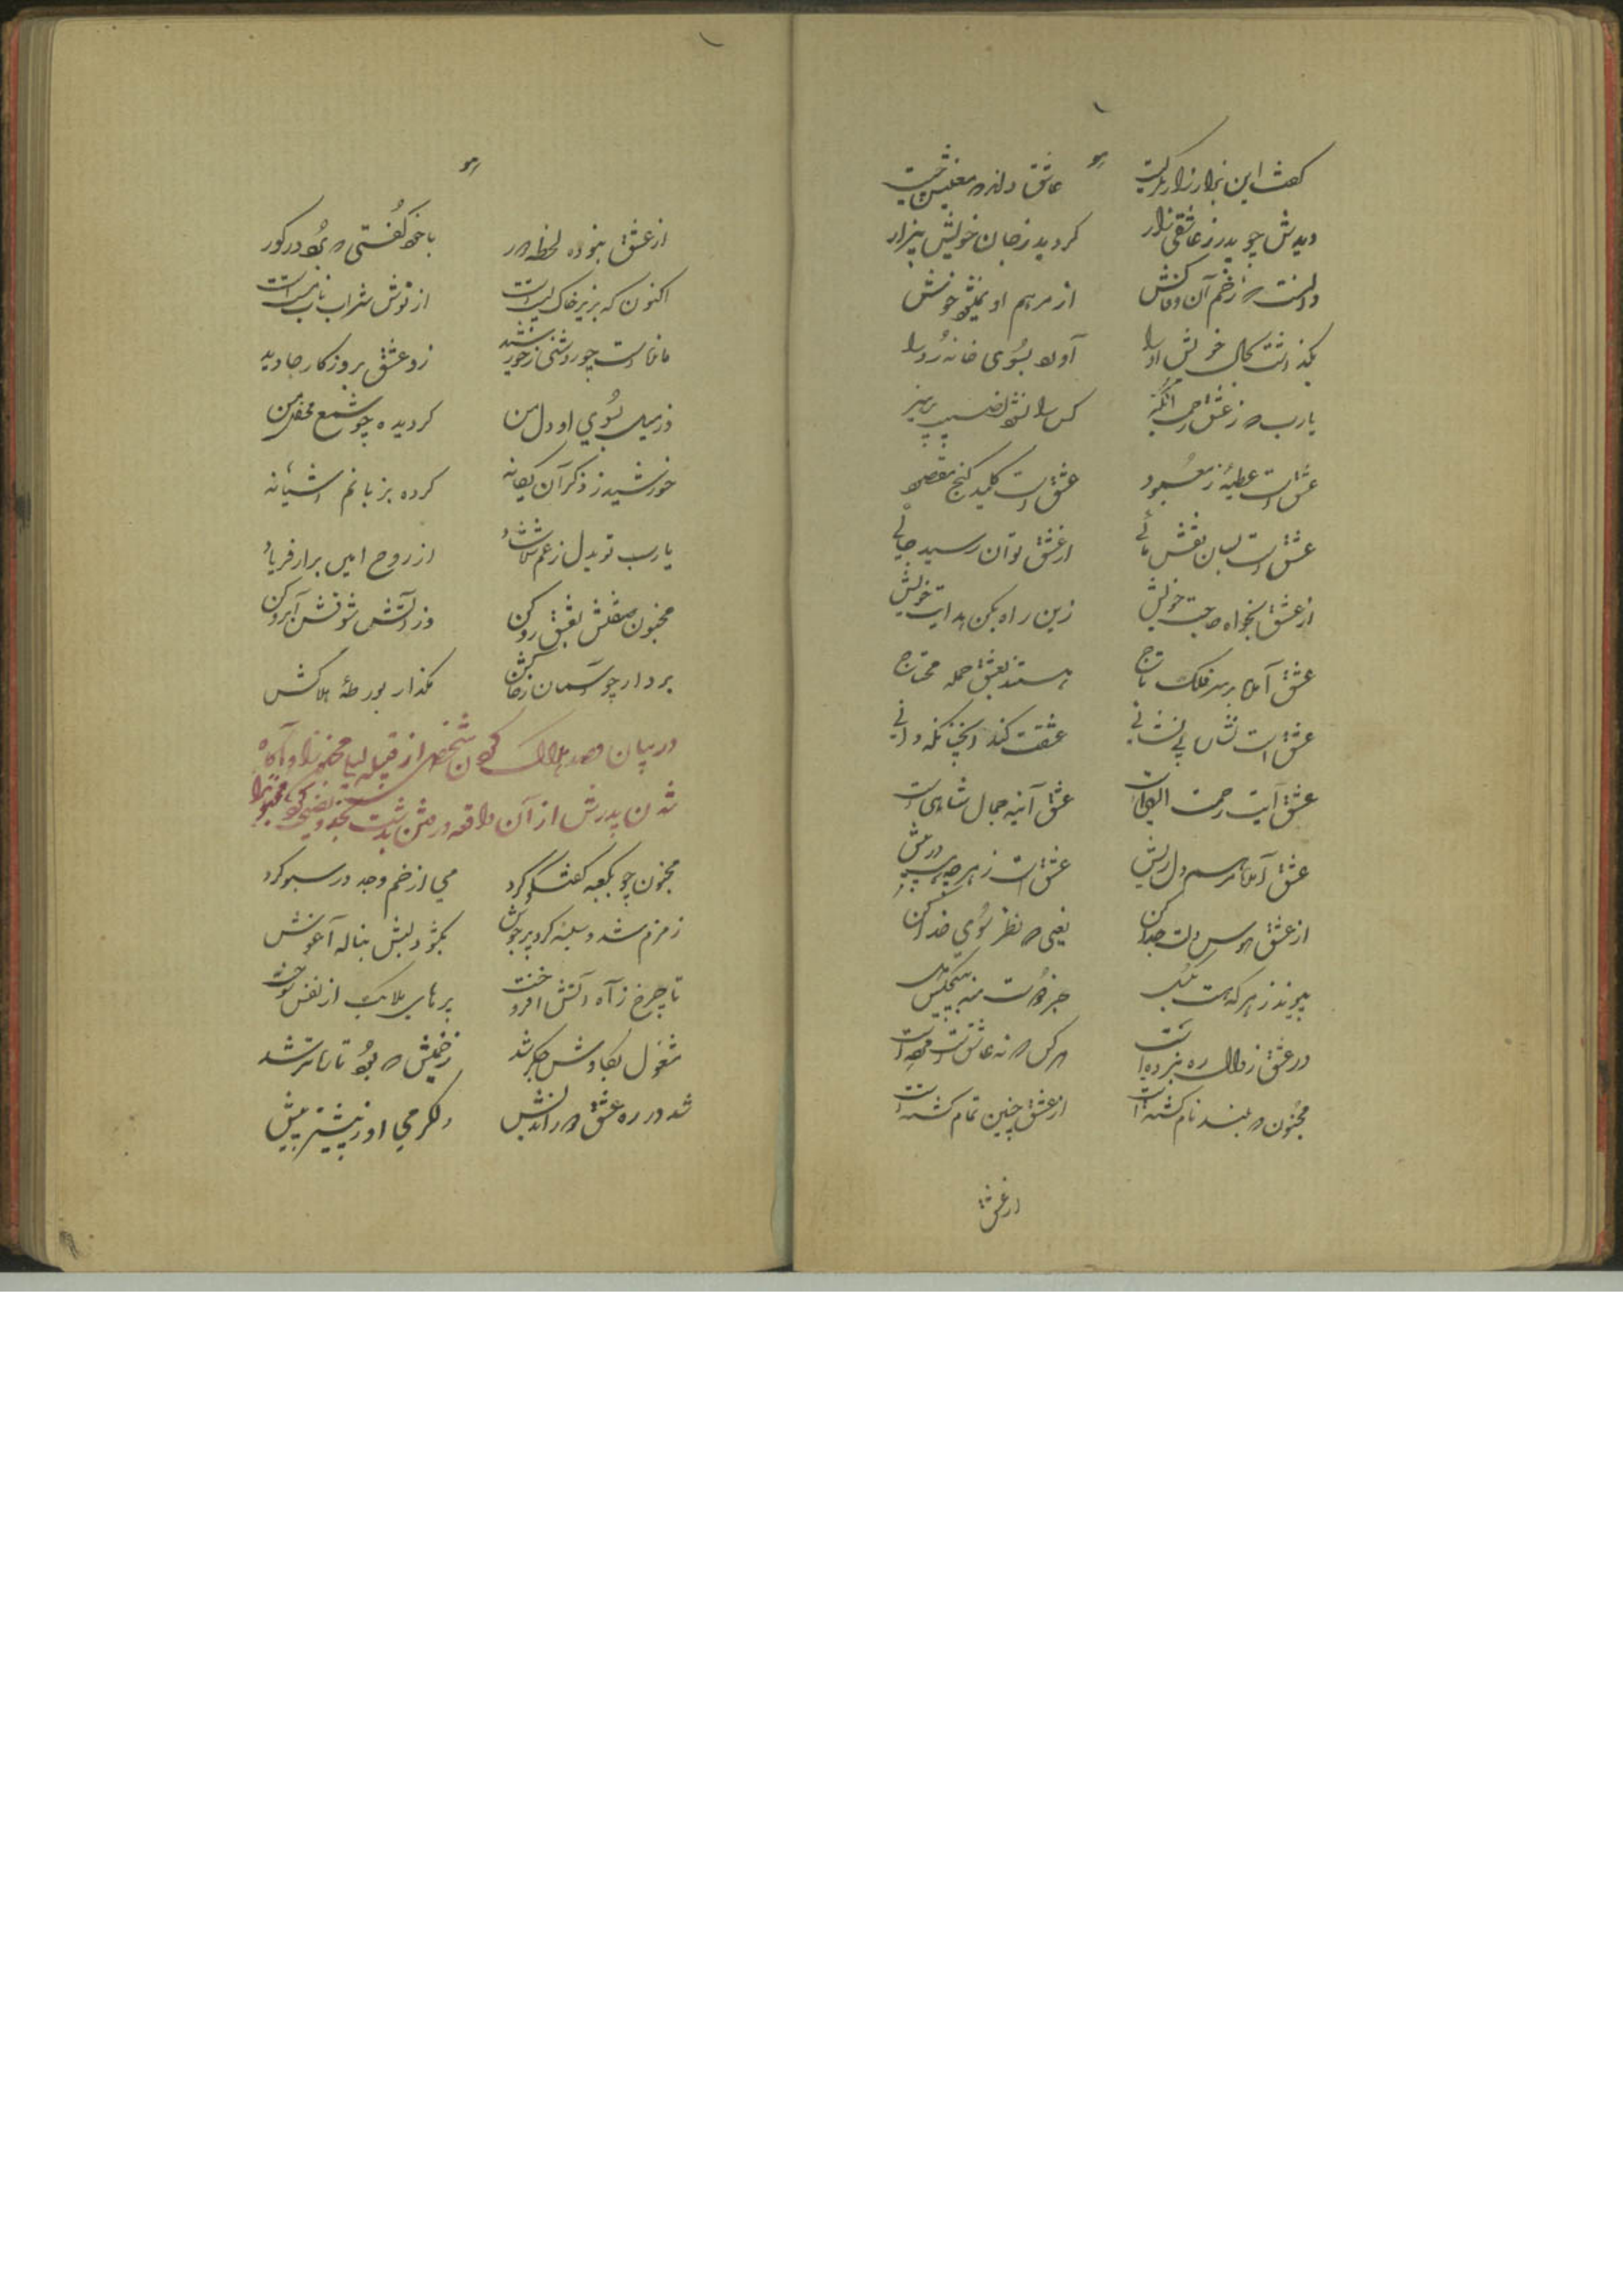 هو
گفت این بزار زار بگریست عاشق داند که معنیش چیست
دیدش چو پدر ز عاشقی زار گردید ز جان خویش بیزار
دانست که زخم آن وفاکش از مرهم او نمیشود خوش
بگذاشت بحال خویش او را آورد بسوی خانه رو را
یارب که ز عشق انگیز کس را نشود نصیب پرهیز
عشق است عطیهٔ ز معبود عشق است کلید گنج مقصود
عشق است بسان نقش مانی از عشق توان رسید جانی
از عشق بخواه حاجت خویش زین راه بکن هدایت خویش
عشق آمده بر سر فلک تاج هستند بعشق جمله محتاج
عشق است نشان بی نشانی عشقت کند آنچنانکه دانی
عشق آیت رحمت الهی است عشق آئینه جمال شاهی است
عشق آمده مرهم دل ریش عشق است ز هر چه هست در پیش
از عشق هوس دلت جدا کن یعنی که نظر بسوی خدا کن
پیوند ز هر که هست بگسل جز دوست منه بهیچکس دل
در عشق زوال ره نبرده است هر کس که نه عاشق است مرده است
مجنون که بلند نام گشته است از عشق چنین تمام گشته است
از عشق
هو
از عشق نبوده لحظهٔ دور با خود گفتی که بود در گور
اکنون که بزیر خاک پست است از نوش شراب ناب مست است
مانده است چو روشنی ز خورشید زو عشق بروزگار جاوید
وز میل بسوی او دل من گردیده چو شمع محفل من
خورشید ز ذکر آن یگانه کرده بزبانم آشیانه
یارب تو بدل ز غم شاد از روح امین برار فریاد
مجنون صفتش بعشق رو کن وز آتش شوقش آبرو کن
بردار چو آسمان ز خاکش مگذار بورطهٔ هلاکش
در بیان قصد هلاک کردن شخصی از قبیله لیلی مجنون را و آگاه
شدن پدرش از آن واقعه و رفتن بدشت نجد و نصیحت کردن مجنون را
مجنون چو بکعبه گفتگو کرد می از خم وجد در سبو کرد
زمزم شد و سینه کرد پر جوش بگشود لبش بناله آغوش
تا چرخ ز آه آتش افروخت پرهای ملایک از نفس سوخت
مشغول بکاوش جگر شد زخمیش که بود تازه تر شد
شد در ره عشق دور اندیش دلگرمی او ز پیشتر بیش